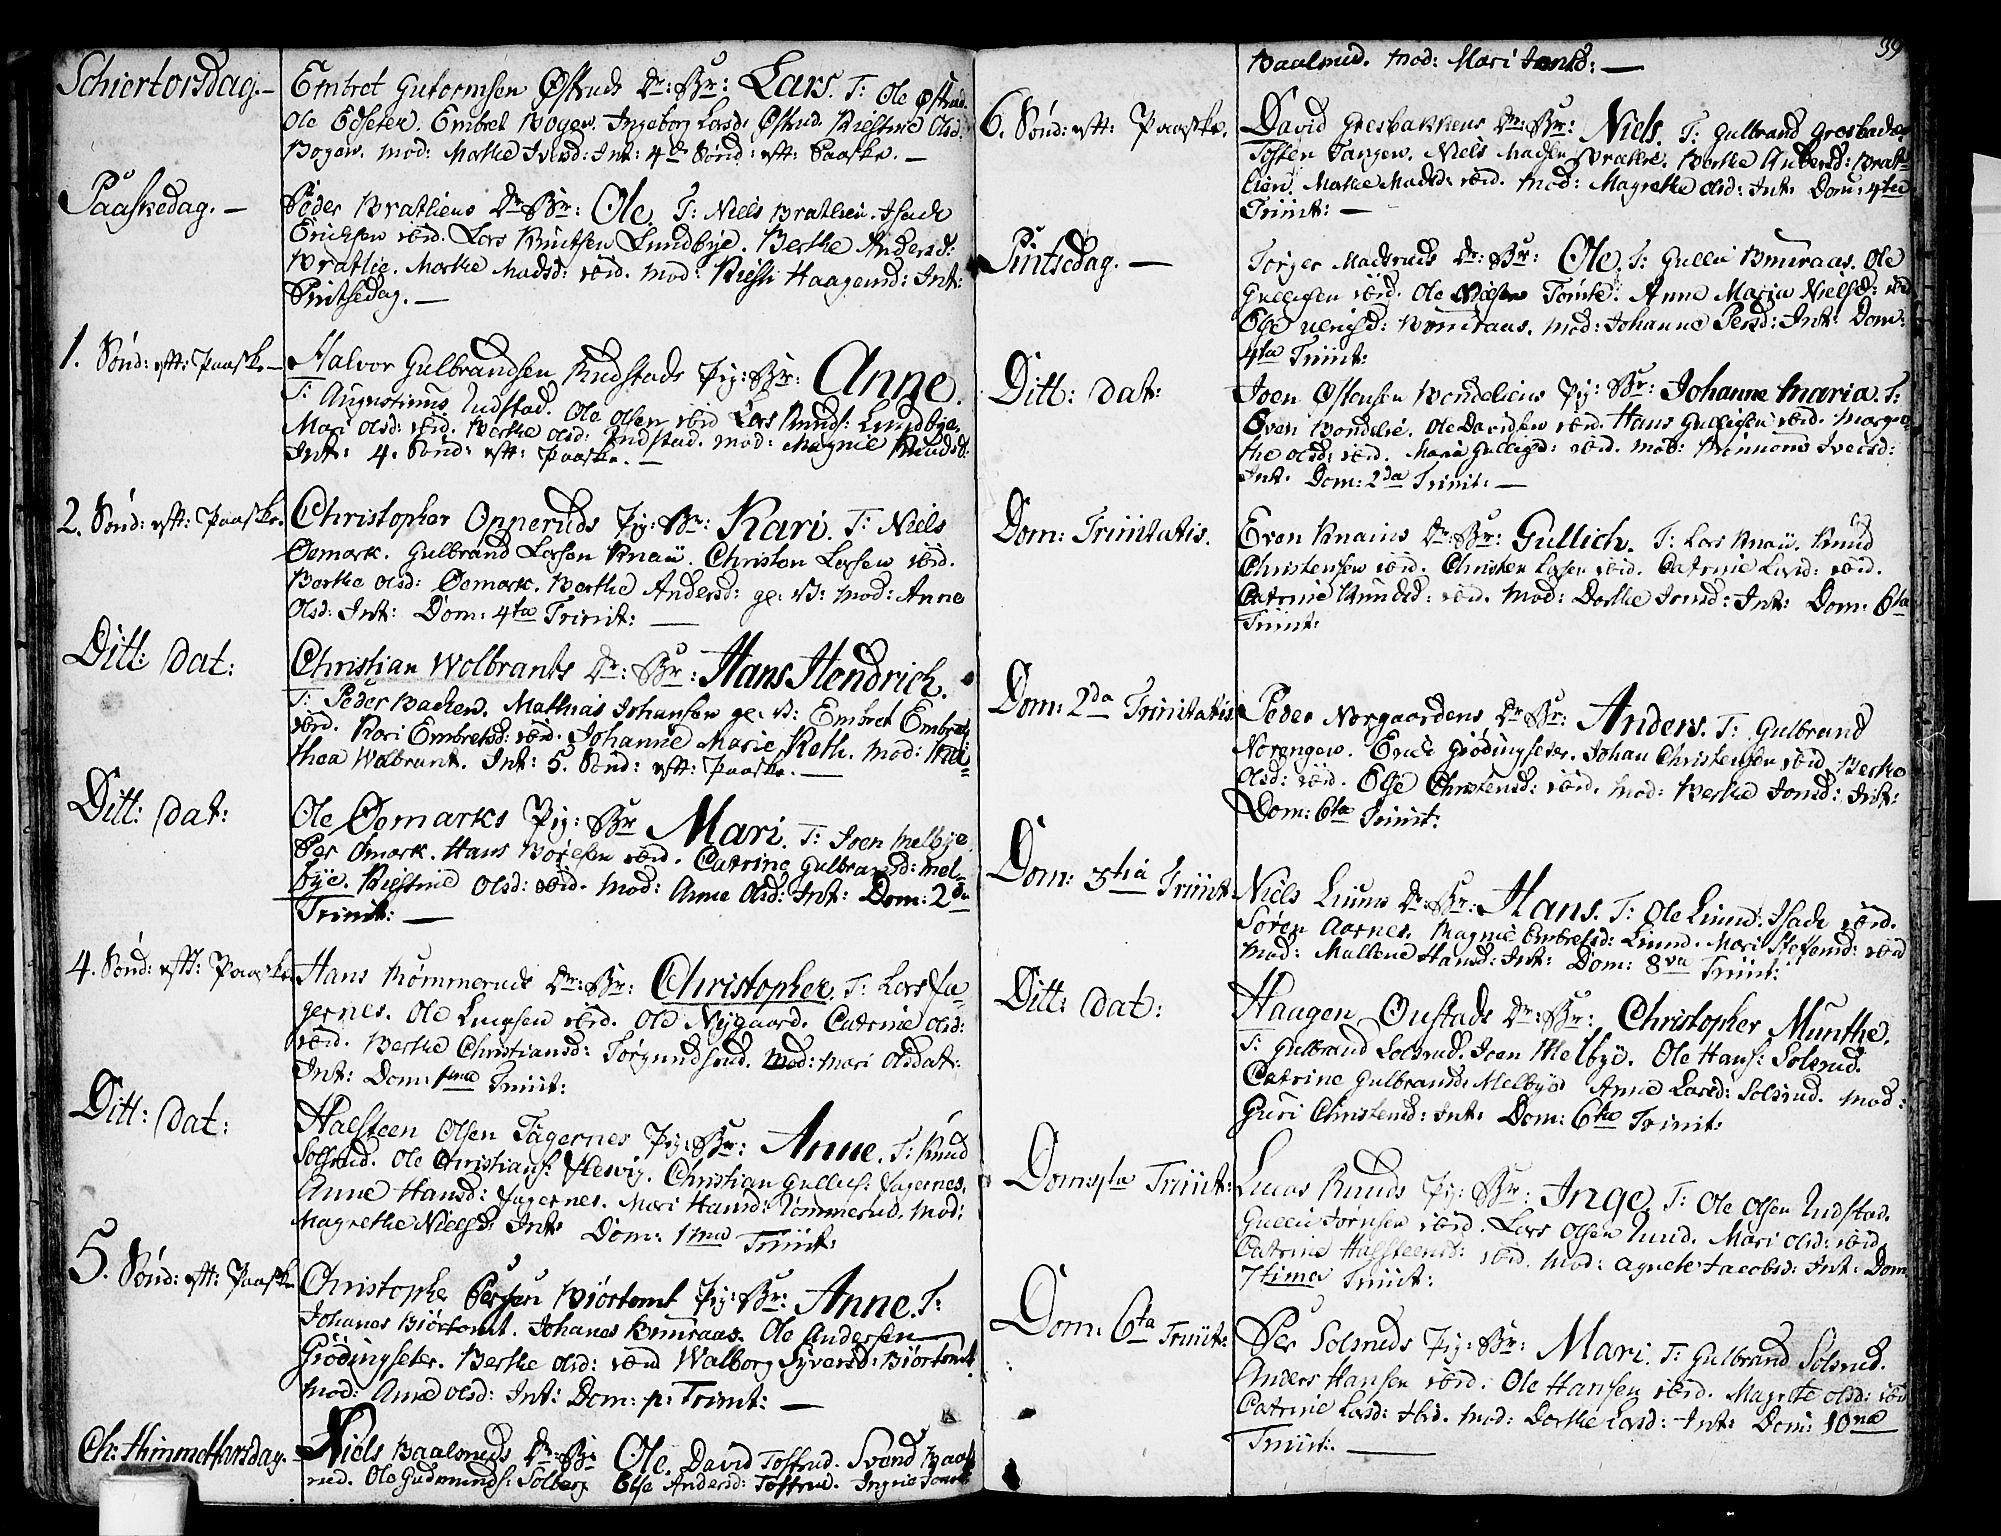 Schiertorsdag. — Embret Gutormsen Østruds Dr: Br: Lars. T: Ole Østrud.
Ole Edseter. Embret Bogen. Ingeborg Larsd: Østrud. Kiestine Olsd:
Bogen. Mod: Marthe Iversd: Int: 4de Sönd: eft: Paaske. —
Paaskedag. — Peder Bratliens Dr: Br: Ole. T: Niels Bratlien. Isach
Erichsen ibid. Lars Knutsen Lundbye. Berthe Andersd:
Bratlie. Marthe Madsd: ibid. Mod: Kiesti Haagensd: Int:
Pintsedag. —
1. Sönd: eft: Paaske — Halvor Gulbrandsen Rudstads Pig: Br: Anne.
T: Augustinus Rudstad. Ole Olsen ibid Lars Knuds: Lundbye.
Mari Olsd: ibid. Berthe Olsd: Rudstad. Mod: Magnie Knudsd:
Int: 4. Sönd: eft: Paaske. —
2. Sönd: eft: Paaske. Christopher Opperuds Pig: Br: Kari. T: Niels
Oemark. Gulbrand Larsen Knaii. Christen Larsen ibid.
Berthe Olsd: Oemark. Berthe Andersd: ge: B: Mod: Anne
Olsd: Int: Dom: 4ta Trinit: —
Ditt: dat: Christian Wolbrants Dr: Br: Hans Hendrich.
T: Peder Backen. Mathias Johansen ge: B: Embret Embrets
ibid. Kari Embretsd: ibid. Johanne Marie Keth. Mod:
thea Wolbrant. Int: 5. Sönd: eft: Paaske. —
Ditt: dat: Ole Oemarks Pig: Br: Mari. T: Joen Melbye.
Per Ømark. Hans Börgesen ibid. Catrine Gulbransd: Mel-
bye. Kiestine Olsd: ibid. Mod: Anne Olsd: Int: Dom: 2da
Trinit: —
4. Sönd: eft: Paaske. Hans Römmeruds Dr: Br: Christopher. T: Lars Fa-
gernes. Ole Larsen ibid. Ole Nygaard. Catrine Olsd:
ibid. Berthe Christiansd: Torgundsrud. Mod: Mari Olsdatr:
Int: Dom: 1ma Trinit:
Ditt: dat: Halsteen Olsen Fagernes Pig: Br: Anne. T: Knud
Solsrud. Ole Christians: Helvig. Christian Gullichs: Fagernes.
Anne Hansd: Fagernes. Mari Hansd: Römmerud. Mod:
Magrethe Nielsd: Int: Dom: 1ma Trinit:
5. Sönd: eft: Paaske Christopher Persen Biörtomt Pig: Br: Anne. T:
Johanes Biörtomt. Johanes Bruraas. Ole Andersen
Giödingseter. Berthe Olsd: ibid Walborg Syversd: Biörtomt
Mod: Anne Olsd: Int: Dom: p: Trinit: —
Ch: Himmelfarsdag. — Niels Baalsruds Dr: Br: Ole. David Tostrud. Svend Baals
rud. Ole Gudmunds: Solberg Else Andersd: Tostrud. Ingrie Jonsd:
39
Baalsrud. Mod: Mari Jonsd: —
6. Sönd: eft: Paaske. David Gresbakkens Dr: Br: Niels. T: Gulbrand Gresbacken
Tosten Tangen. Niels Madsen Bratlie. Berthe Andersd: Brat-
lien. Marthe Madsd: ibid. Mod: Magrethe Olsd: Int: Dom: 4ta
Trinit: —
Pintsedag. — Torger Madsruds Dr: Br: Ole. T: Gullich Bruraas. Ole
Gullichsen ibid. Ole Nielsen Tomte. Anne Maria Nielsd: ibid
Else Bruraas. Mod: Johanne Persd: Int: Dom:
4ta Trinit:
Ditt: dat: Joen Østensen Bondeliens Pig: Br: Johanne Maria. T:
Even Bondelie. Ole Davidsen ibid. Hans Gullichsen ibid. Margre-
the Olsd: ibid. Maria Gullichsd: ibid. Mod: Iversd:
Int: Dom: 2da Trinit: —
Dom: Trinitatis. Even Knaiins Dr: Br: Gullich. T: Lars Knaii. Knud
Christensen ibid. Christen Larsen ibid. Catrine Larsd: ibid.
Catrine Knudsd: ibid. Mod: Dorthe Jonsd: Int: Dom: 6ta
Trinit:
Dom: 2da Trinitatis Peder Norgaardens Dr: Br: Anders. T: Gulbrand
Norengen. Erich Giödingseter. Johan Christensen ibid Berthe
Olsd: ibid. Else Christensd: ibid. Mod: Berthe Jonsd: Int:
Dom: 6ta Trinit:
Dom: 3tia Trinit: Niels Liuns Dr: Br: Hans. T: Ole Liund. Isach ibid.
Sören Aarnes. Magnie Embretsd: Liund. Mari Steffensd: ibid
Mod: Mallene Hansd: Int: Dom: 8va Trinit:
Ditt: dat: Haagen Oustads Dr: Br: Christopher Munthe.
T: Gulbrand Solsrud. Joen Melbye. Ole Hans: Solsrud.
Catrine Gulbransd: Melbye Anne Larsd: Solsrud. Mod:
Guri Christensd: Int: Dom: 6ta Trinit:
Dom: 4ta Trinit: Lucas Ruuds Pig: Br: Inge. T: Ole Olsen Rudstad.
Gullich Jörnsen ibid. Lars Olsen Ruud. Mari Olsd: ibid
Catrine Halsteensd: ibid. Mod: Agnete Jacobsd: Int: Dom:
7tima Trinit:
Dom: 6ta Trinit: Per Solsruds Pig: Br: Mari. T: Gulbrand Solsrud.
Anders Hansen ibid. Ole Hansen ibid. Magrete Olsd: ibid
Catrine Larsd: ibid. Mod: Dorthe Larsd: Int: Dom: 10ma
Trinit: —